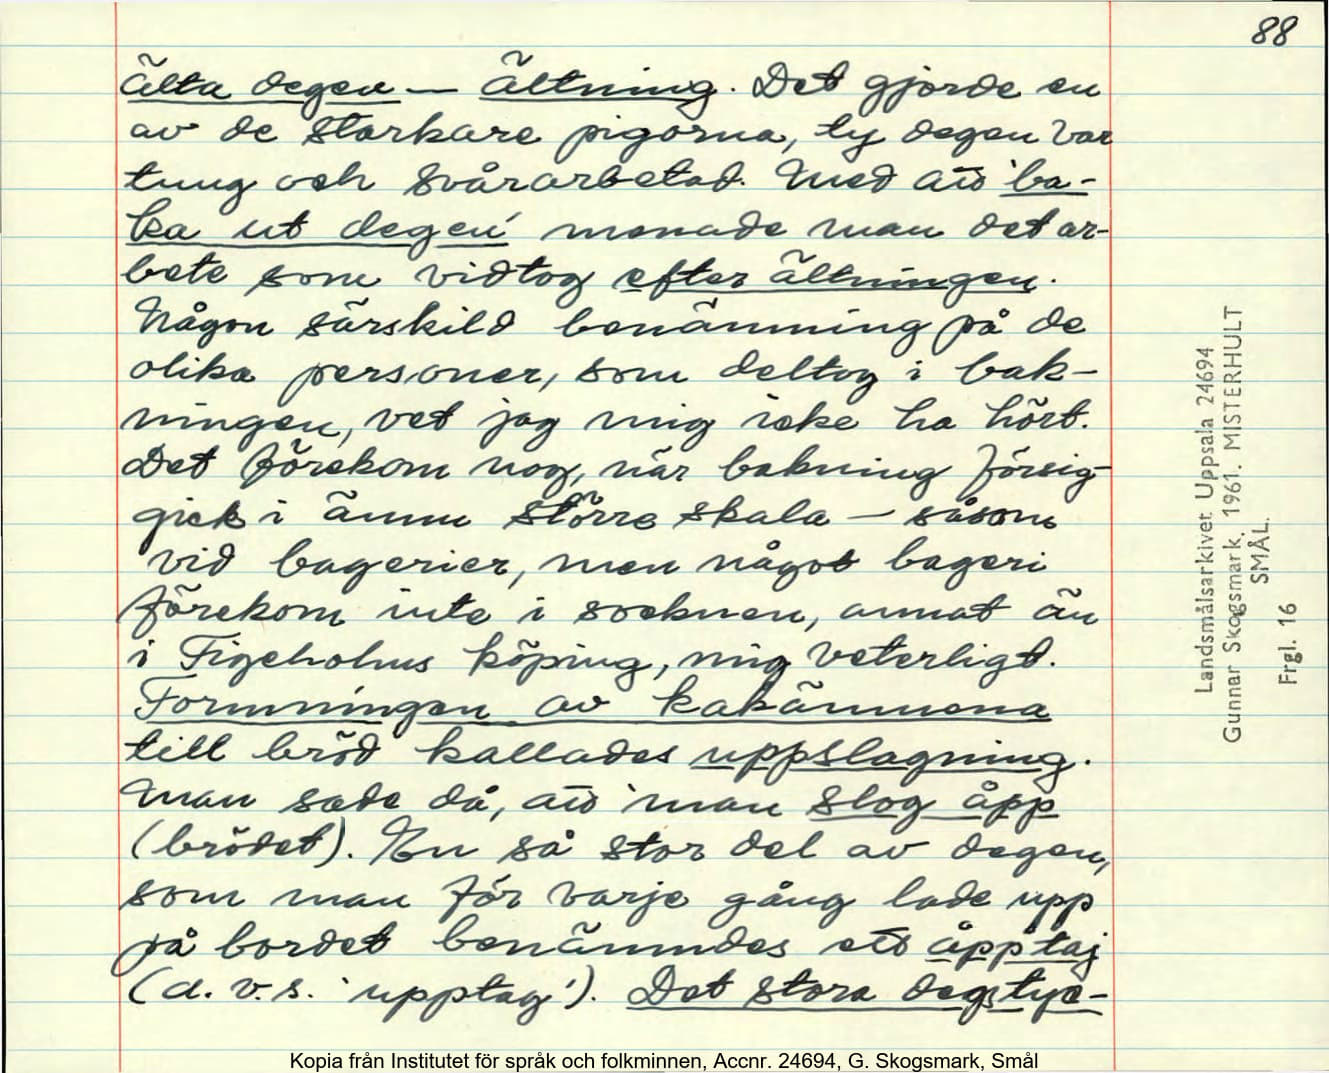 88
älta degen — ältning. Det gjorde en
av de starkare pigorna, ty degen var
tung och svårarbetad. Med att 'ba-
ka ut degen' menade man det ar-
bete som vidtog efter ältningen.
Någon särskild benämning på de
olika personer, som deltog i bak-
ningen, vet jag mig icke ha hört.
Det förekom nog, när bakning försig-
gick i ännu större skala — såsom
vid bagerier, men något bageri
förekom inte i socknen, annat än
i Figeholms köping, mig veterligt.
Formningen av kakämnena
till bröd kallades uppslagning.
Man sade då, att man slog åpp
(brödet). En så stor del av degen,
som man för varje gång lade upp
på bordet benämndes ett åpptaj
(d. v. s. 'upptag'). Det stora degstyc-
Landsmålsarkivet Uppsala 24694
Gunnar Skogsmark. 1961. MISTERHULT
SMÅL.
Frgl. 16
Kopia från Institutet för språk och folkminnen, Accnr. 24694, G. Skogsmark, Smål